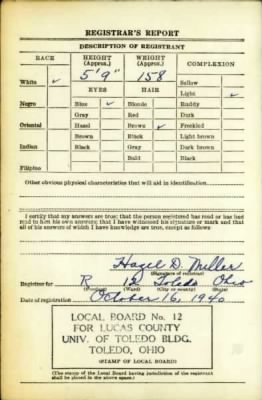 REGISTRAR'S REPORT
DESCRIPTION OF REGISTRANT
RACE HEIGHT (Approx.) WEIGHT (Approx.) COMPLEXION
5'9" 158 Sallow
White ✓ EYES HAIR Light ✓
Negro Blue ✓ Blonde Ruddy
Gray Red Dark
Oriental Hazel Brown ✓ Freckled
Brown Black Light brown
Indian Black Gray Dark brown
Bald Black
Filipino
Other obvious physical characteristics that will aid in identification
I certify that my answers are true; that the person registered has read or has had
read to him his own answers; that I have witnessed his signature or mark and that
all of his answers of which I have knowledge are true, except as follows:
Hazel D. Miller
(Signature of registrar)
Registrar for R 12 Toledo Ohio
(Precinct) (Ward) (City or county) (State)
Date of registration October 16, 1940
LOCAL BOARD No. 12
FOR LUCAS COUNTY
UNIV. OF TOLEDO BLDG.
TOLEDO, OHIO
(STAMP OF LOCAL BOARD)
(The stamp of the Local Board having jurisdiction of the registrant
shall be placed in the above space.)